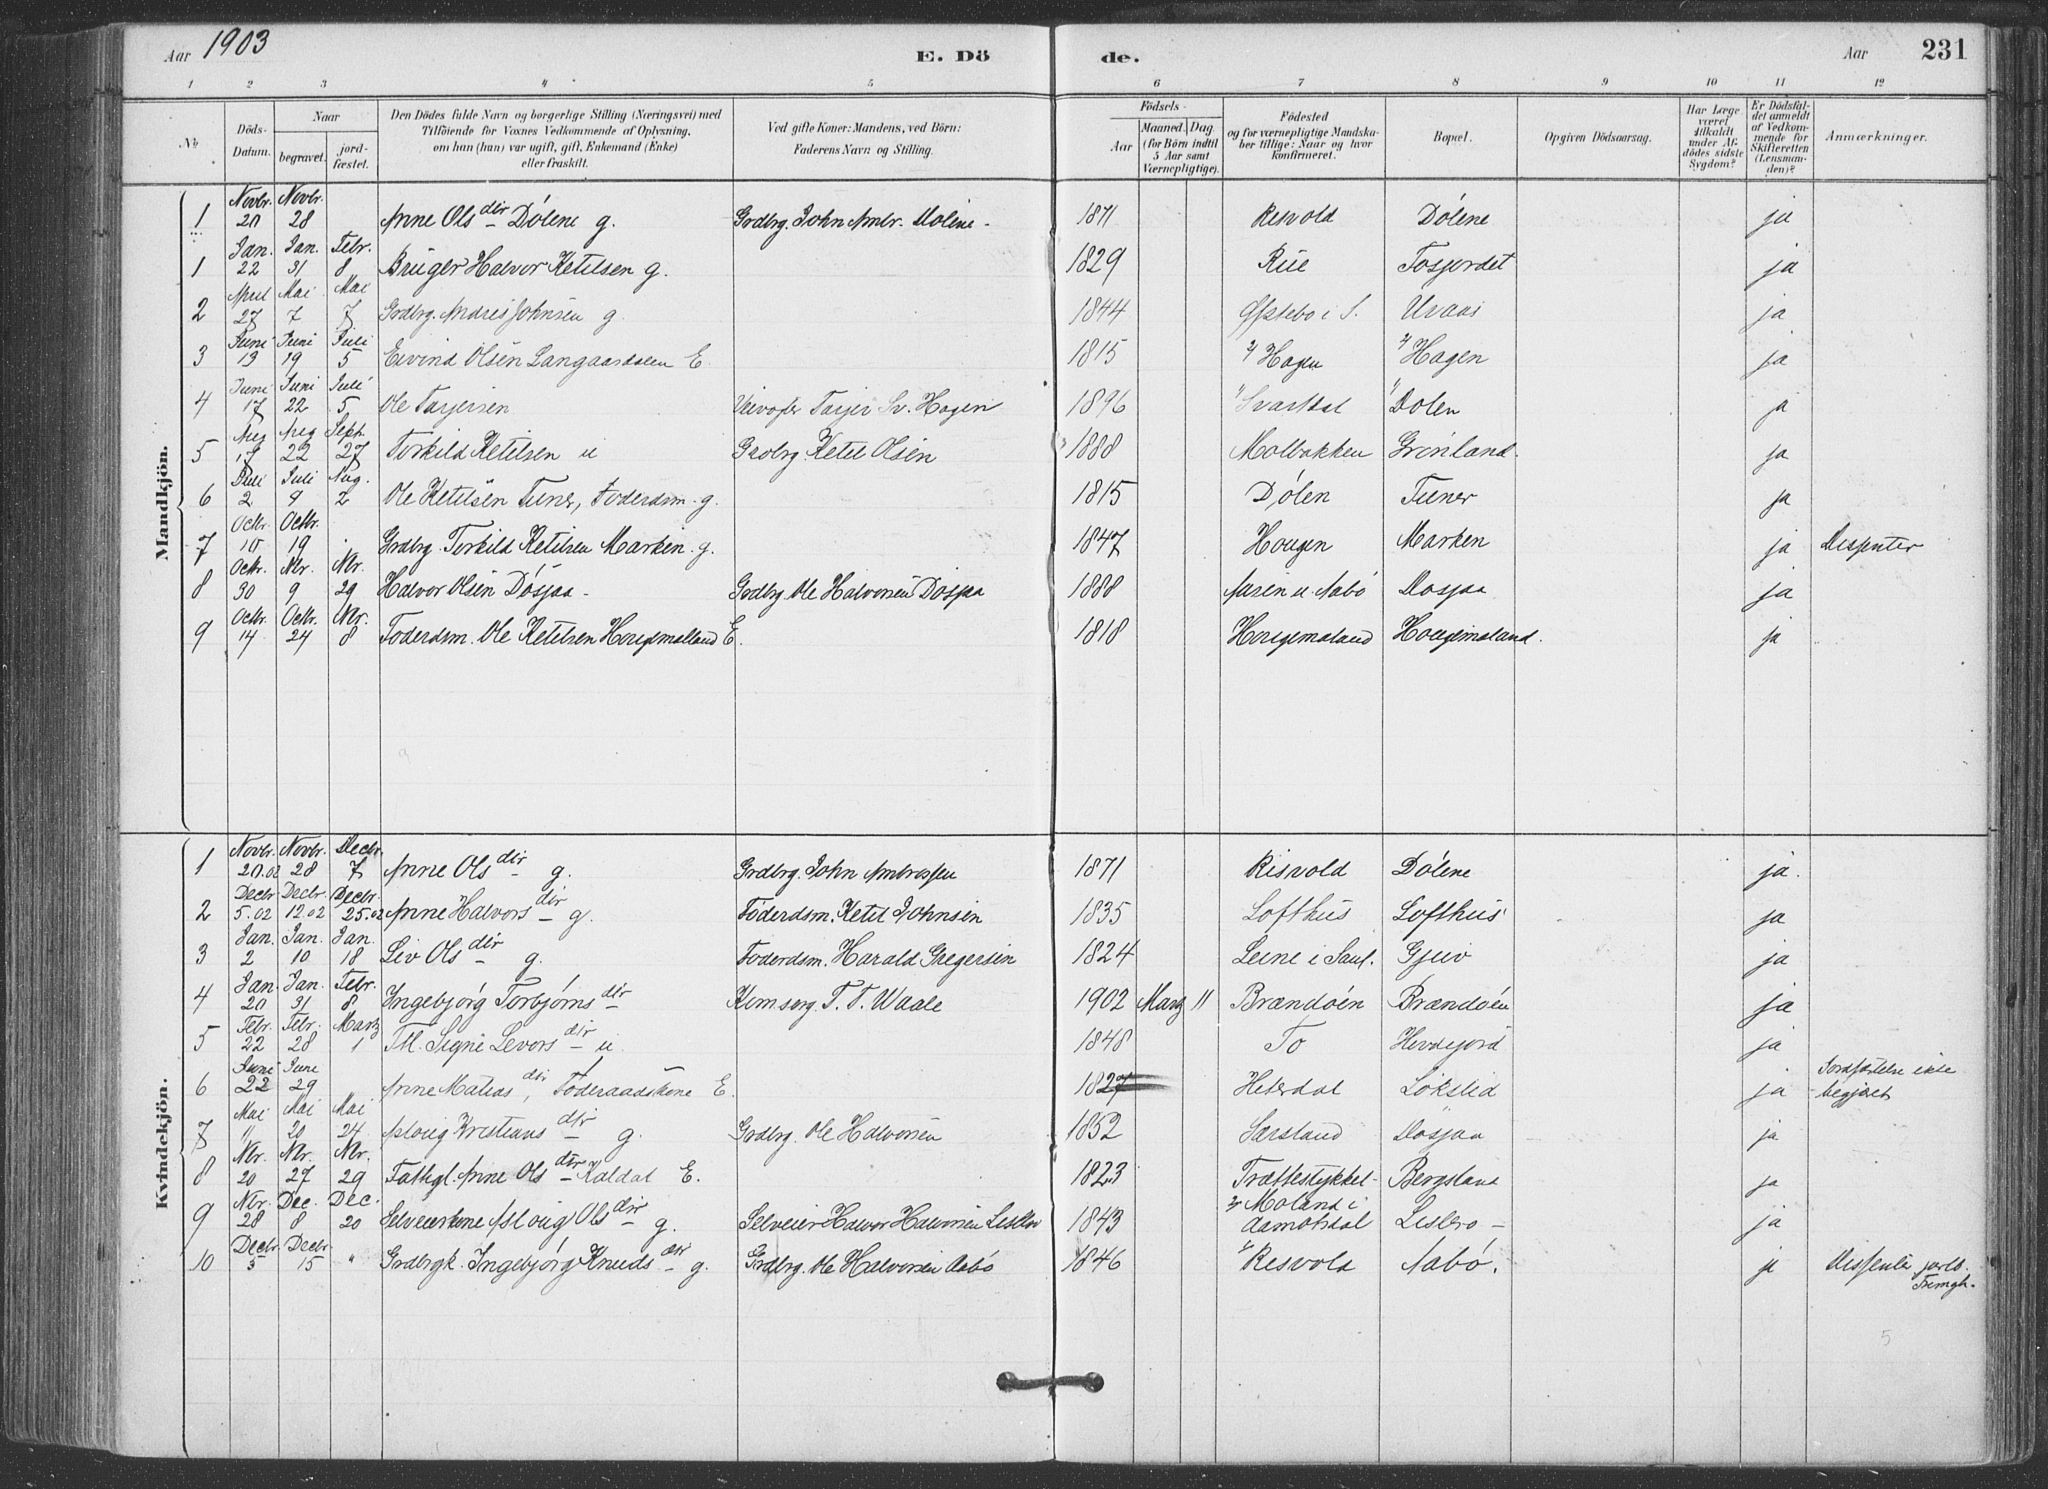 Aar 1903 E. Dö de. Aar 231
1 2 3 4 5 6 7 8 9 10 11 12
No Döds-Datum. Naar begravet. jordfæstet. Den Dödes fulde Navn og borgerlige Stilling (Næringsvei) med Tilföiende for Voxnes Vedkommende af Oplysning, om han (hun) var ugift, gift, Enkemand (Enke) eller fraskilt. Ved gifte Koner: Mandens, ved Börn: Faderens Navn og Stilling. Födsels- Aar Maaned. Dag. (for Börn indtil 5 Aar samt Værnepligtige). Födested og for værnepligtige Mandskaber tillige: Naar og hvor konfirmeret. Bopæl. Opgiven Dödsaarsag. Har Læge været tilkaldt under Afdödes sidste Sygdom? Er Dödsfaldet anmeldt af Vedkommende for Skifteretten (Lensmanden)? Anmærkninger.
Mandkjön.
1 Novbr. 20 Novbr. 28 Anne Olsdtr Dólene g. Grdbrg. John Ambr. Dólene 1871 Risvold Dólene ja
1 Jan. 22 Jan. 31 Febr. 8 Bruger Halvor Ketilsen g. 1829 Rue Fosjordet ja
2 April 27 Mai 7 Mai 7 Grdbrg. Andres Johnsen g. 1844 Østebø i S. Uraas ja
3 Juni 13 Juni 19 Juli 5 Eivind Olsen Langaardalen E. 1815 Hagen Hagen ja
4 Juni 17 Juni 22 Juli 5 Ole Tarjersen Tarjer Sv. Hagen 1896 Svartdal Dolen ja
5 Aug 17 Aug 22 Sept. 27 Torkild Ketilsen u Grdbrg. Ketil Olsen 1888 Molbakken Grónland. ja
6 Juli 2 Juli 9 Aug. 2 Ole Ketilsen Tuner, Foderdsm. g. 1815 Dólen Tuner ja
7 Octbr. 10 Octbr. 19 Grdbrg. Torkild Ketilsen Marken. g. 1847 Hougen Marken ja Dissenter
8 Octbr. 30 Nbr. 9 Nbr. 29 Halvor Olsen Dósjaa Grdbrg. Ole Halvorsen Dósjaa 1888 Aasen u. Aabó Dosjaa ja
9 Octbr. 14 Octbr. 24 Nbr. 8 Foderdsm. Ole Ketilsen Hougemoland E. 1818 Hougemoland Hougemoland. ja
Kvindekjön.
1 Novbr. 20.02 Novbr. 28 Decbr. 7 Anne Olsdtr g. Grdbrg. John Ambrossen 1871 Risvold Dólene ja.
2 Decbr 5.02 Decbr. 12.02 Decbr. 25.02 Anne Halvorsdtr g. Foderdsm. Ketil Johnsen 1835 Lofthus Lofthus ja
3 Jan. 2 Jan. 10 Jan. 18 Liv Olsdtr g. Foderdsm. Harald Gregersen 1824 Leine i Saul. Gjuv ja
4 Jan. 20 Jan. 31 Febr. 8 Ingebjórg Torbjórnsdtr T. T. Waale 1902 Marz 11 Brændóen Brændóen ja
5 Febr. 22 Febr. 28 Martz 1 Signe Levorsdtr u. 1848 To ja
6 Juni 22 Juni 29 Anne Matiasdtr, Föderaadskone E. 1827 Heterdal Lökslid ja Jordfæstelse ikke begjæret
7 Mai 11 Mai 20 Mai 24 Aslaug Kristiansdtr g. Grdbrg. Ole Halvorsen 1852 Særsland Dósjaa ja
8 Nbr. 20 Nbr. 27 Nbr. 29 Fattigl. Anne Olsdtr Kaldal E. 1823 Trættestykket Bergsland ja
9 Nbr. 28 Dec. 8 Dec. 20 Selveierkone Aslaug Olsdtr g. Selveier Halvor Halvorsen Leslebro 1843 Moland i Aamotsdal Leslebro ja
10 Decbr 5 Decbr 15 " Grdbrgk. Ingebjórg Knudsdtr g. Grdbrg. Ole Halvorsen Aabó 1846 Risvold Aabó. ja Dissenter jordf.
5